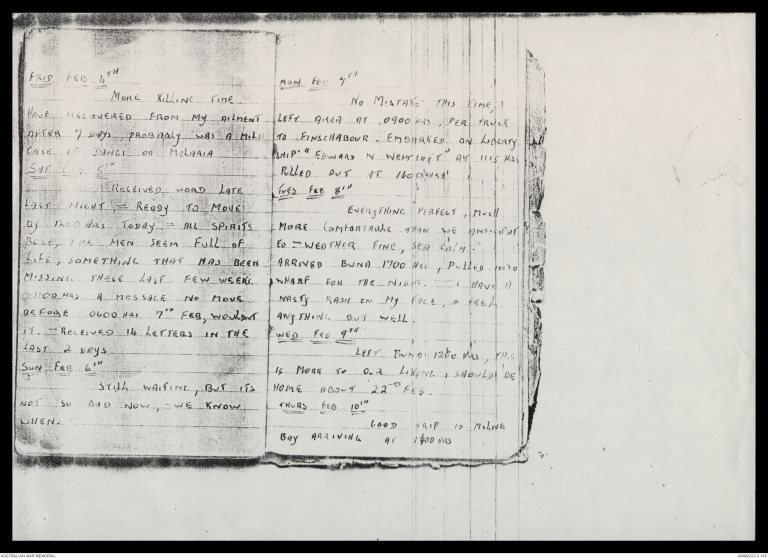 FRID FEB 4TH
MORE KILLING TIME.
HAVE RECOVERED FROM MY AILMENT
AFTER 7 DAYS, PROBABLY WAS A MILD
CASE OF DANGI OR MILARIA
SAT FEB 5TH
RECEIVED WORD LATE
LAST NIGHT, = READY TO MOVE
BY 1200 HRS TODAY. = ALL SPIRITS
ROSE, THE MEN SEEM FULL OF
LIFE, SOMETHING THAT HAS BEEN
MISSING THESE LAST FEW WEEKS.
HRS A MESSAGE NO MOVE
BEFORE 0600 HRS 7TH FEB, WOULDNT
IT. = RECEIVED 14 LETTERS IN THE
LAST 2 DAYS
SUN FEB 6TH
STILL WAITING, BUT ITS
NOT SO BAD NOW, = WE KNOW
WHEN.
MON FEB 7TH
NO MISTAKE THIS TIME,
LEFT AREA AT 0900 HRS, PER TRUCK
TO FINSCHABOUR. EMBARKED ON LIBERTY
SHIP "EDWARD N WESTCOTT" AT 1115 HRS
PULLED OUT AT 1600 HRS
TUES FEB 8TH
EVERYTHING PERFECT, MUCH
MORE COMFORTABLE THAN WE ANTICIPAT
ED = WEATHER FINE, SEA CALM.
ARRIVED BUNA 1700 HRS, PULLED INTO
WHARF FOR THE NIGHT. = I HAVE A
NASTY RASH ON MY FACE, & FEEL
ANYTHING BUT WELL.
WED FEB 9TH
LEFT BUNA 1200 HRS, THIS
IS MORE TO OUR LIKING, SHOULD BE
HOME ABOUT 22ND FEB.
THURS FEB 10TH
GOOD TRIP TO MILNE
BAY ARRIVING AT HRS
AUSTRALIAN WAR MEMORIAL